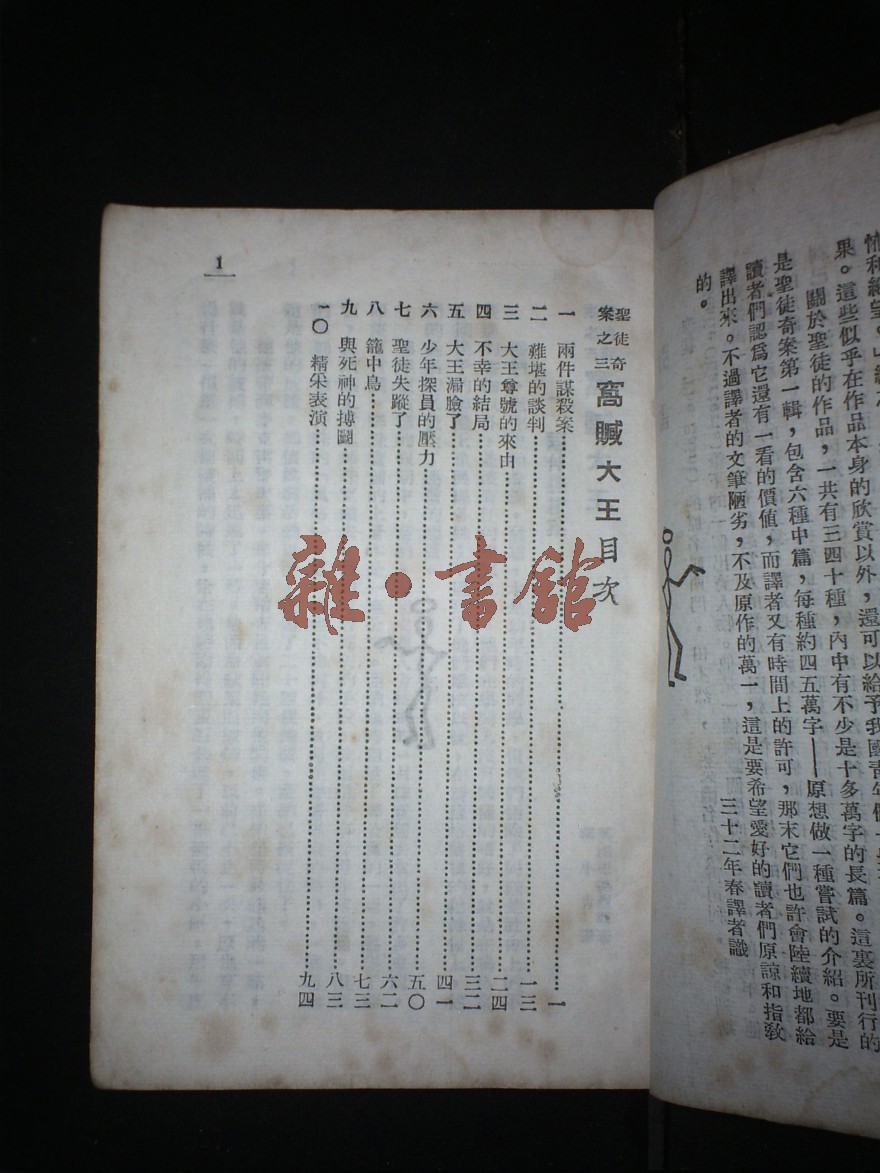 果。這些似乎在作品本身的欣賞以外，還可以給予我國青年們一
關於聖徒的作品，一共有三四十種，內中有不少是十多萬字的長篇。這裏所刊行的
是聖徒奇案第一輯，包含六種中篇，每種約四五萬字——原想做一種嘗試的介紹。要是
讀者們認爲它還有一看的價値，而譯者又有時間上的許可，那末它們也許會陸續地都給
譯出來。不過譯者的文筆陋劣，不及原作的萬一，這是要希望愛好的讀者們原諒和指敎
的。
三十二年春譯者識
聖徒奇案之三 窩贓大王目次
一 兩件謀殺案……一
二 難堪的談判……一三
三 大王尊號的來由……二四
四 不幸的結局……三二
五 大王漏臉了……四一
六 少年探員的壓力……五〇
七 聖徒失蹤了……六二
八 籠中鳥……七三
九 與死神的搏鬬……八三
一〇 精采表演……九四
1
雜·書館